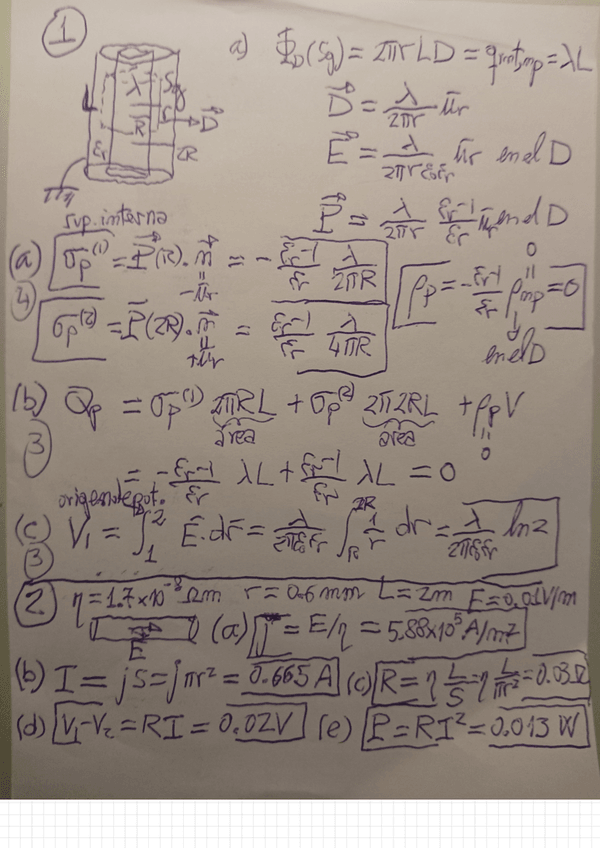 1
a) Φ_D(S_g) = 2πrLD = q_int,mp = λL
L λ S_g r D⃗
R 2R
εr
D⃗ = λ/2πr ū_r
E⃗ = λ/2πrε₀εr ū_r en el D
P⃗ = λ/2πr εr-1/εr ū_r en el D
sup. interna
(a) σ_p^(1) = P⃗(R)·n⃗ = - εr-1/εr λ/2πR
4 = -ū_r
ρ_p = - εr-1/εr ρ_mp = 0
0 = en el D
σ_p^(2) = P⃗(2R)·n⃗ = εr-1/εr λ/4πR
= +ū_r
(b) Q_p = σ_p^(1) 2πRL + σ_p^(2) 2π2RL + ρ_p V
3 área área = 0
= - εr-1/εr λL + εr-1/εr λL = 0
origen de pot.
(c) V₁ = ∫₁² E⃗·dr⃗ = λ/2πε₀εr ∫_R^2R 1/r dr = λ/2πε₀εr ln2
3
2 η = 1.7×10⁻⁸ Ωm r = 0.6 mm L = 2m E = 0.01 V/m
E⃗ (a) j = E/η = 5.88×10⁵ A/m²
(b) I = jS = jπr² = 0.665 A (c) R = η L/S = η L/πr² = 0.03 Ω
(d) V₁-V₂ = RI = 0.02V (e) P = RI² = 0.013 W